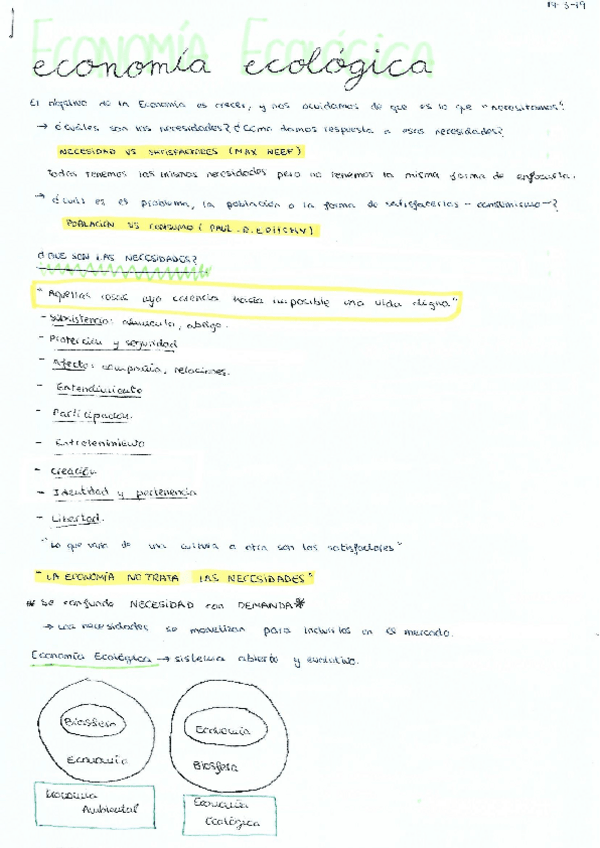 14-3-19
Economía Ecológica
economía ecológica
El objetivo de la Economía es crecer, y nos olvidamos de que es lo que "necesitamos".
→ ¿Cuáles son las necesidades? ¿Cómo damos respuesta a esas necesidades?
NECESIDAD VS SATISFACTORES (MAX NEEF)
Todos tenemos las mismas necesidades pero no tenemos la misma forma de enfocarla.
→ ¿Cuál es el problema, la población o la forma de satisfacerlas - consumismo -?
POBLACIÓN VS CONSUMO ( PAUL . R.
¿QUE SON LAS NECESIDADES?
"Aquellas cosas cuya carencia hacía imposible una vida digna"
- Subsistencia: alimento, abrigo.
- Protección y seguridad
- Afecto: compañía, relaciones.
- Entendimiento
- Participación.
- Entretenimiento
- Creación
- Identidad y pertenencia
- Libertad.
"Lo que varía de una cultura a otra son los satisfactores"
"LA ECONOMÍA NO TRATA LAS NECESIDADES"
* Se confunde NECESIDAD con DEMANDA *
→ Las necesidades se monetizan para incluirlos en el mercado.
Economía Ecológica → sistema abierto y evolutivo.
Biosfera
Economía
Economía
Biosfera
Economía
Ambiental
Economía
Ecológica